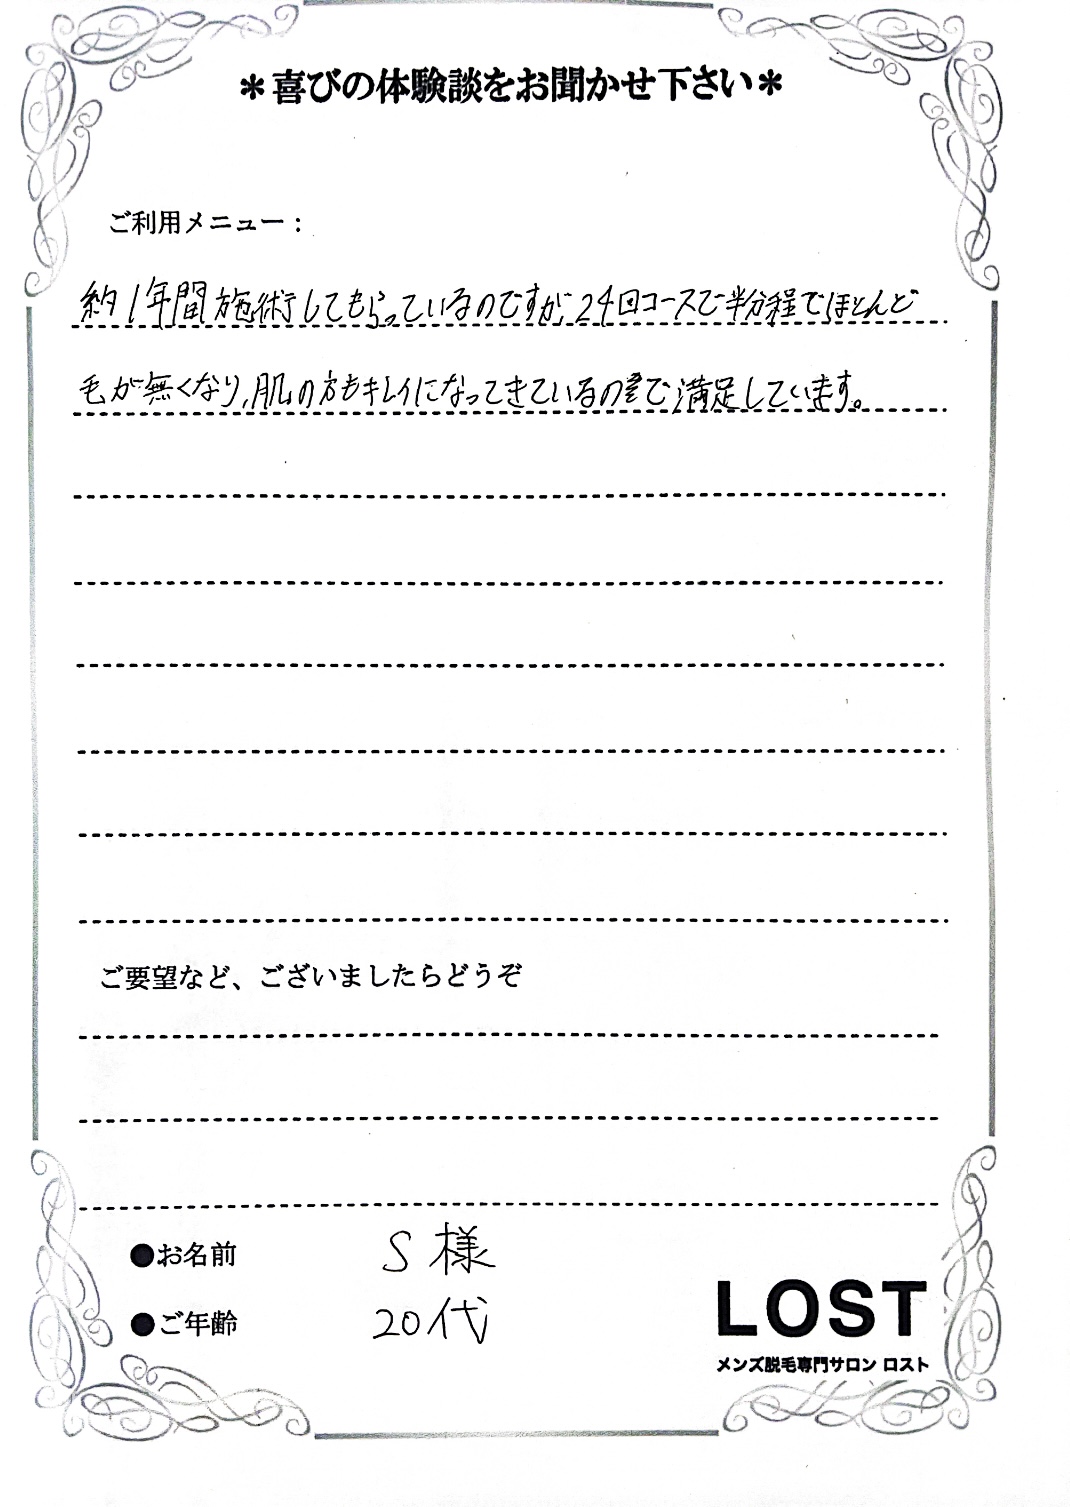 ＊喜びの体験談をお聞かせ下さい＊
ご利用メニュー：
約1年間施術してもらっているのですが、24回コースで半分程でほとんど
毛が無くなり、肌の方もキレイになってきているので満足しています。
ご要望など、ございましたらどうぞ
●お名前 S様
●ご年齢 20代
LOST
メンズ脱毛専門サロン ロスト